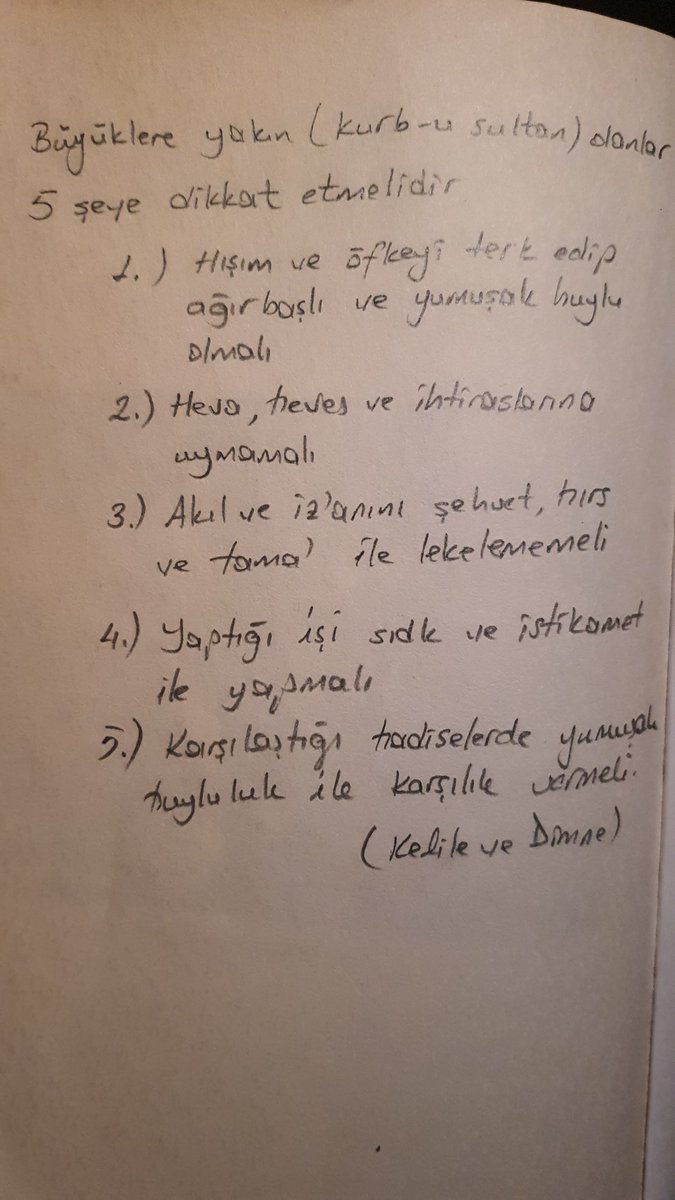 Büyüklere yakın (kurb-u sultan) olanlar
5 şeye dikkat etmelidir
1.) Hışım ve öfkeyi terk edip
ağırbaşlı ve yumuşak huylu
olmalı
2.) Heva, heves ve ihtiraslarına
uymamalı
3.) Akıl ve iz'anını şehvet, hırs
ve tama' ile lekelememeli
4.) Yaptığı işi sıdk ve istikamet
ile yapmalı
5.) Karşılaştığı hadiselerde yumuşak
huyluluk ile karşılık vermeli.
(Kelile ve Dimne)